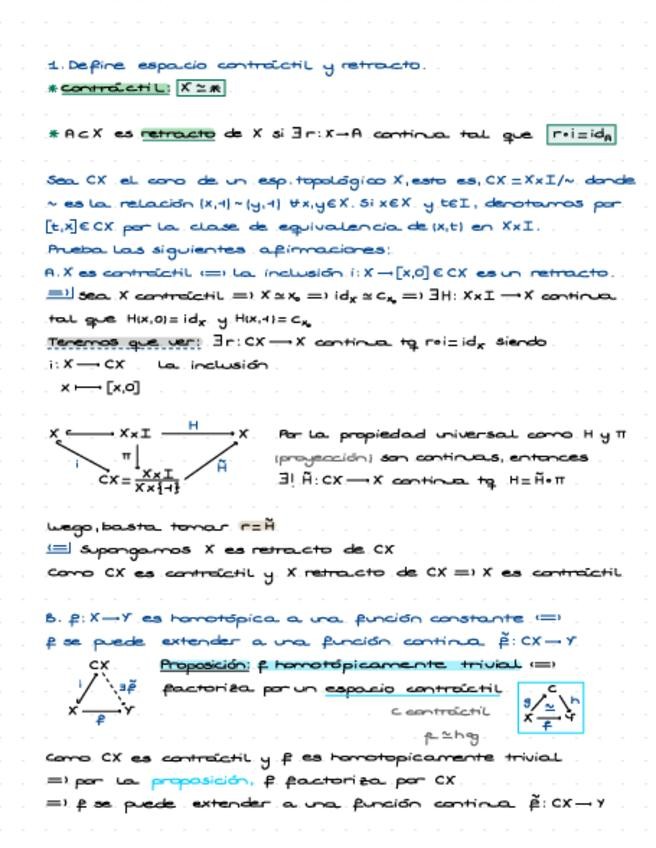 1. Define espacio contráctil y retracto.
* contráctil: X ≃ *
* A⊂X es retracto de X si ∃r: X→A continua tal que r∘i=id_A
Sea CX el cono de un esp. topológico X, esto es, CX = X×I/~ donde
~ es la relación (x,1)~(y,1) ∀x,y∈X. Si x∈X y t∈I, denotamos por
[t,x]∈CX por la clase de equivalencia de (x,t) en X×I.
Prueba las siguientes afirmaciones:
A. X es contráctil ⟺ la inclusión i: X→[x,0]∈CX es un retracto.
⟹| Sea X contráctil ⟹ X≃x₀ ⟹ id_x ≃ c_x₀ ⟹ ∃H: X×I→X continua
tal que H(x,0)=id_x y H(x,1)=c_x₀
Tenemos que ver: ∃r: CX→X continua tq r∘i=id_x siendo
i: X→CX la inclusión
x ↦ [x,0]
X ↪ X×I →H X
i π H̃
CX = X×I / X×{1}
Por la propiedad universal como H y π
(proyección) son continuas, entonces
∃! H̃: CX→X continua tq H=H̃∘π
Luego, basta tomar r=H̃
⟸| Supongamos X es retracto de CX
Como CX es contráctil y X retracto de CX ⟹ X es contráctil
B. f: X→Y es homotópica a una función constante ⟺
f se puede extender a una función continua f̃: CX→Y
CX
i ∃f̃
X f Y
Proposición: f homotópicamente trivial ⟺
factoriza por un espacio contráctil
C contráctil
f≃h∘g
C
g ≃ h
X f Y
Como CX es contráctil y f es homotopicamente trivial
⟹ por la proposición, f factoriza por CX
⟹ f se puede extender a una función continua f̃: CX→Y